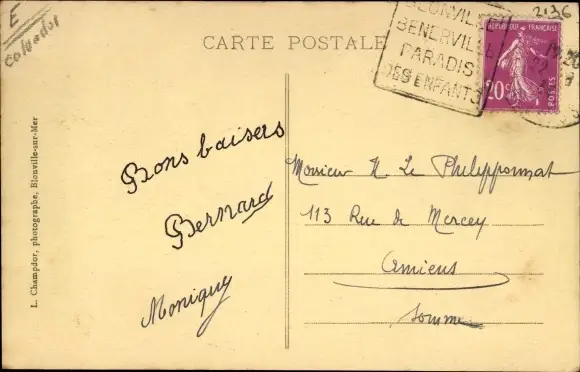 E
Calvados
2136
CARTE POSTALE
BLONVILLE
BENERVILLE
PARADIS
DES ENFANTS
REPUBLIQUE FRANÇAISE
20c
POSTES
Bons baisers
Bernard
Monique
Monsieur
Le
113 Rue de Mercey
Amiens
Somme
L. Champdor, photographe, Blonville-sur-Mer